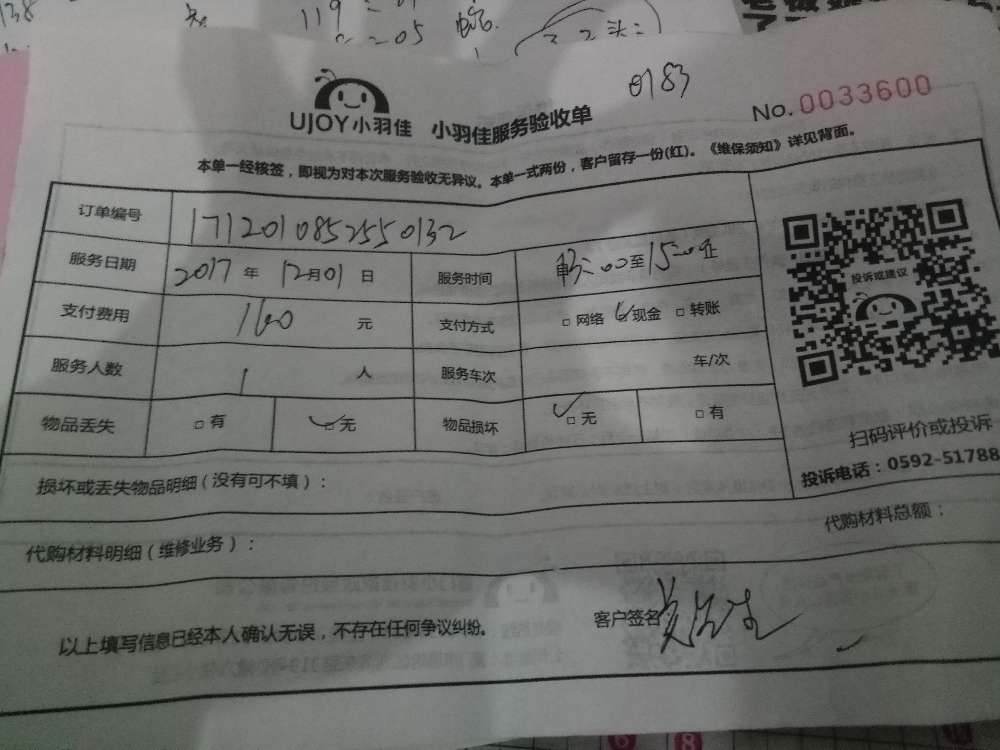 0183
UJOY小羽佳 小羽佳服务验收单
No.0033600
本单一经核签，即视为对本次服务验收无异议。本单一式两份，客户留存一份(红)。《维保须知》详见背面。
订单编号 1712010852550132
服务日期 2017年12月01日 服务时间 :00至15:00止
支付费用 160元 支付方式 □网络 □现金 □转账
服务人数 1人 服务车次 车/次
物品丢失 □有 □无 物品损坏 □无 □有
投诉或建议
扫码评价或投诉
投诉电话：0592-51788
损坏或丢失物品明细（没有可不填）：
代购材料明细（维修业务）： 代购材料总额：
以上填写信息已经本人确认无误，不存在任何争议纠纷。 客户签名